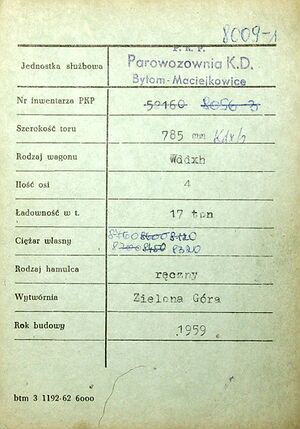 8009-1
P. K. P.
Jednostka służbowa Parowozownia K.D.
Bytom-Maciejkowice
Nr inwentarza PKP 50160 8056-3
Szerokość toru 785 mm Kdxh
Rodzaj wagonu Wddxh
Ilość osi 4
Ładowność w t. 17 ton
Ciężar własny 8160 8600 8120
8200 8450 8320
Rodzaj hamulca ręczny
Wytwórnia Zielona Góra
Rok budowy 1959
btm 3 1192-62 6000